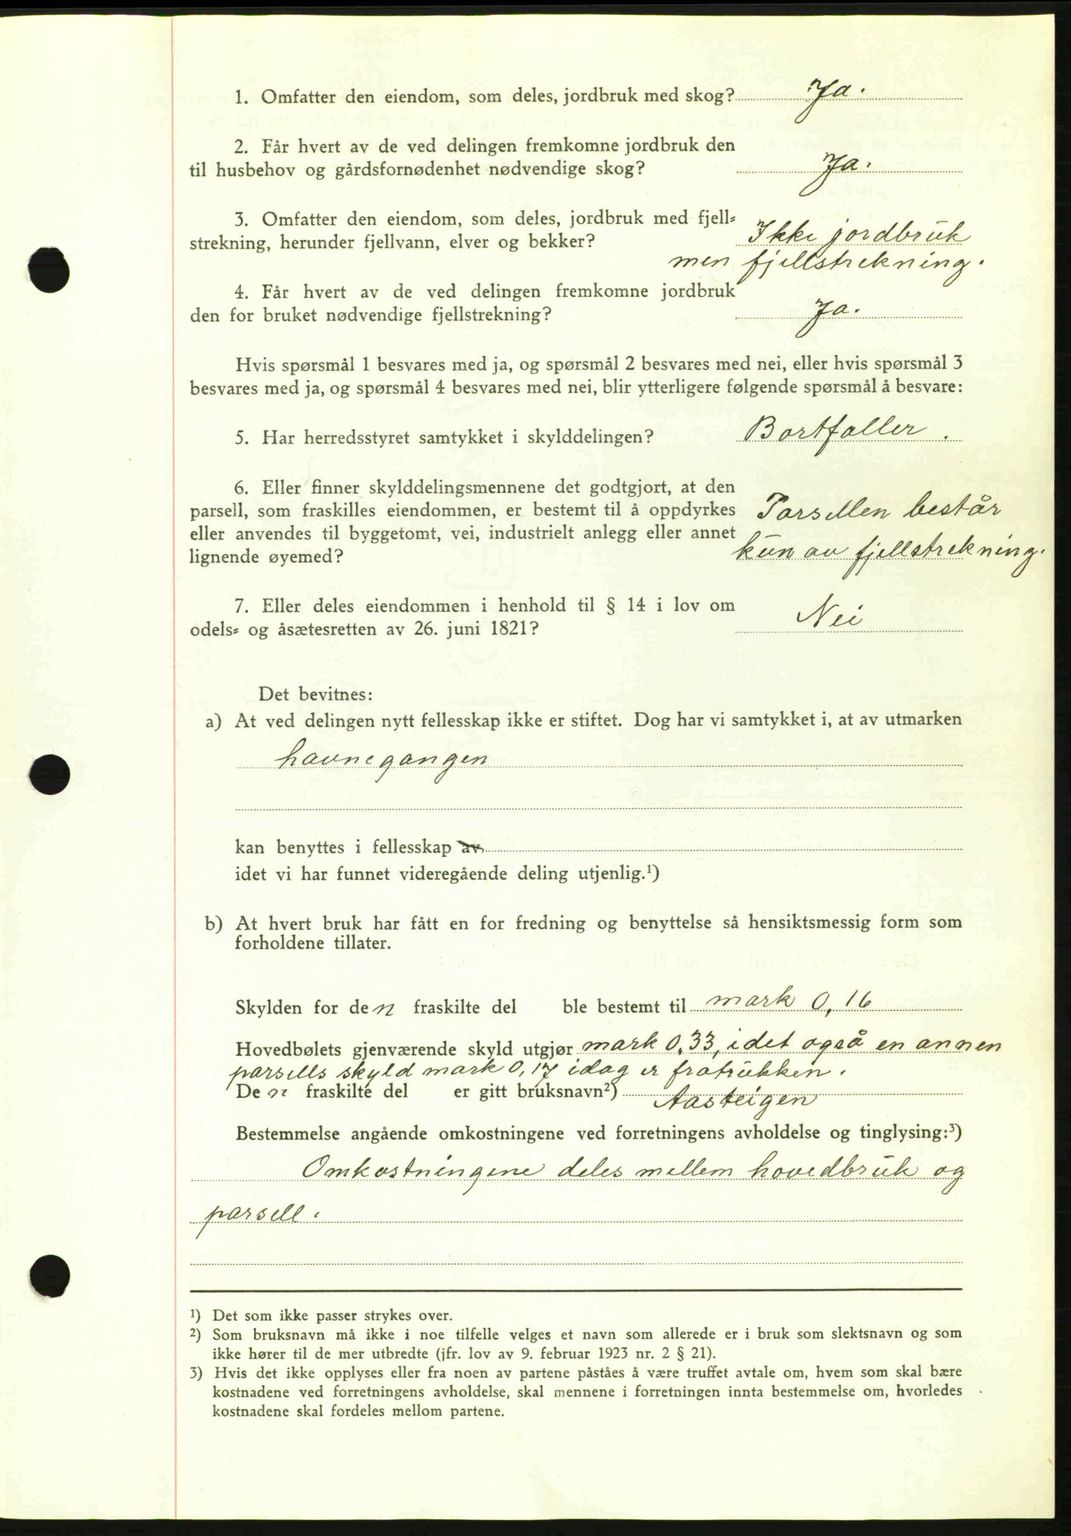 1. Omfatter den eiendom, som deles, jordbruk med skog? Ja.
2. Får hvert av de ved delingen fremkomne jordbruk den
til husbehov og gårdsfornødenhet nødvendige skog? Ja.
3. Omfatter den eiendom, som deles, jordbruk med fjell-
strekning, herunder fjellvann, elver og bekker? Ikke jordbruk
men fjellstrekning.
4. Får hvert av de ved delingen fremkomne jordbruk
den for bruket nødvendige fjellstrekning? Ja.
Hvis spørsmål 1 besvares med ja, og spørsmål 2 besvares med nei, eller hvis spørsmål 3
besvares med ja, og spørsmål 4 besvares med nei, blir ytterligere følgende spørsmål å besvare:
5. Har herredsstyret samtykket i skylddelingen? Bortfaller.
6. Eller finner skylddelingsmennene det godtgjort, at den
parsell, som fraskilles eiendommen, er bestemt til å oppdyrkes Parsellen består
eller anvendes til byggetomt, vei, industrielt anlegg eller annet kun av fjellstrekning.
lignende øyemed?
7. Eller deles eiendommen i henhold til § 14 i lov om Nei
odels- og åsætesretten av 26. juni 1821?
Det bevitnes:
a) At ved delingen nytt fellesskap ikke er stiftet. Dog har vi samtykket i, at av utmarken
havnegangen
kan benyttes i fellesskap av
idet vi har funnet videregående deling utjenlig.¹)
b) At hvert bruk har fått en for fredning og benyttelse så hensiktsmessig form som
forholdene tillater.
Skylden for den fraskilte del ble bestemt til mark 0,16
Hovedbølets gjenværende skyld utgjør mark 0,33, idet også en annen
parsells skyld mark 0,17 idag er fratrukken.
Den fraskilte del er gitt bruksnavn²) Aasteigen
Bestemmelse angående omkostningene ved forretningens avholdelse og tinglysing:³)
Omkostningene deles mellem hovedbruk og
parsell.
¹) Det som ikke passer strykes over.
²) Som bruksnavn må ikke i noe tilfelle velges et navn som allerede er i bruk som slektsnavn og som
ikke hører til de mer utbredte (jfr. lov av 9. februar 1923 nr. 2 § 21).
3) Hvis det ikke opplyses eller fra noen av partene påståes å være truffet avtale om, hvem som skal bære
kostnadene ved forretningens avholdelse, skal mennene i forretningen innta bestemmelse om, hvorledes
kostnadene skal fordeles mellom partene.